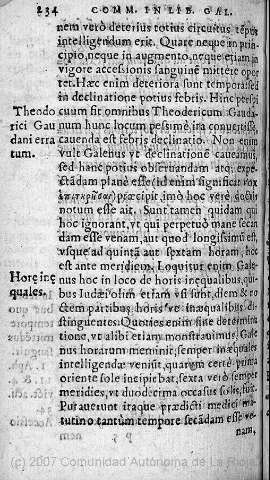 234 COMM. IN LIB. GAL.
nem verò deterius totius circuitus tēpus
intelligendum erit. Quare neque in prin-
cipio, neque in augmento, neque etiam in
vigore accessionis sanguinē mittere opor
tet. Hæc enim deteriora sunt tempora: sed
in declinatione potius febris. Hinc perspi
Theodo cuum sit omnibus Theodericum Gauda
rici Gau num hunc locum pessimè, ira
dani erra cauenda est febris declinatio. Non enim
tum. vult Galenus vt declinatione caueamus,
sed hanc potius obseruandam atq; expe-
ctādam planè esse (id enim significat vox
) præcipit, imò hoc verò doctis
notum esse ait. Sunt tamen quidam qui
hoc ignorant, vt qui perpetuò mane secan
dam esse venam, aut quod longissimū est,
vsque ad quintā aut sextam horam, hoc
Horę inę est ante meridiem. Loquitur enim Gale-
quales. nus hoc in loco de horis inęqualibus, qui-
bus Iudæi olim etiam vsi sunt, diem & no
ctem partibus, horis vè inæqualibus, di-
stinguentes. Quoties enim sine determina
tione, vt alibi etiam monstrauimus, Gale-
nus horarum meminit, semper inæquales
intelligendæ veniūt, quarum certè prima
oriente sole incipiebat, sexta verò semper
meridies, vt duodecima occasus solis, fuit.
Putauerunt itaque prædicti medici ma-
tutino tantùm tempore secādam esse ve-
nam,
(c) 2007 Comunidad Autónoma de La